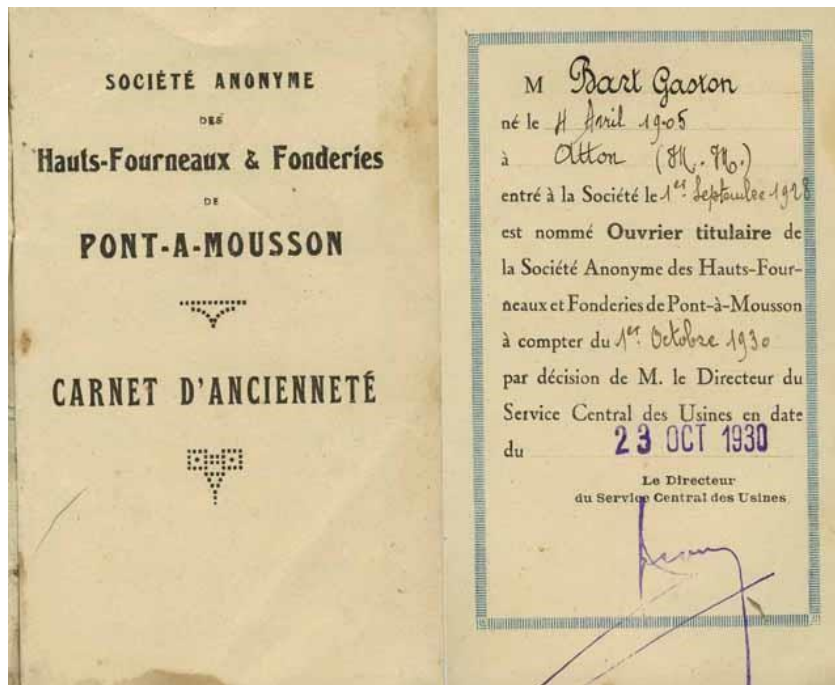 SOCIÉTÉ ANONYME
DES
Hauts-Fourneaux & Fonderies
DE
PONT-A-MOUSSON
CARNET D'ANCIENNETÉ
M Bart Gaston
né le 4 Avril 1905
à Atton (M. M.)
entré à la Société le 1er Septembre 1928
est nommé Ouvrier titulaire de
la Société Anonyme des Hauts-Four-
neaux et Fonderies de Pont-à-Mousson
à compter du 1er Octobre 1930
par décision de M. le Directeur du
Service Central des Usines en date
du 23 OCT 1930
Le Directeur
du Service Central des Usines